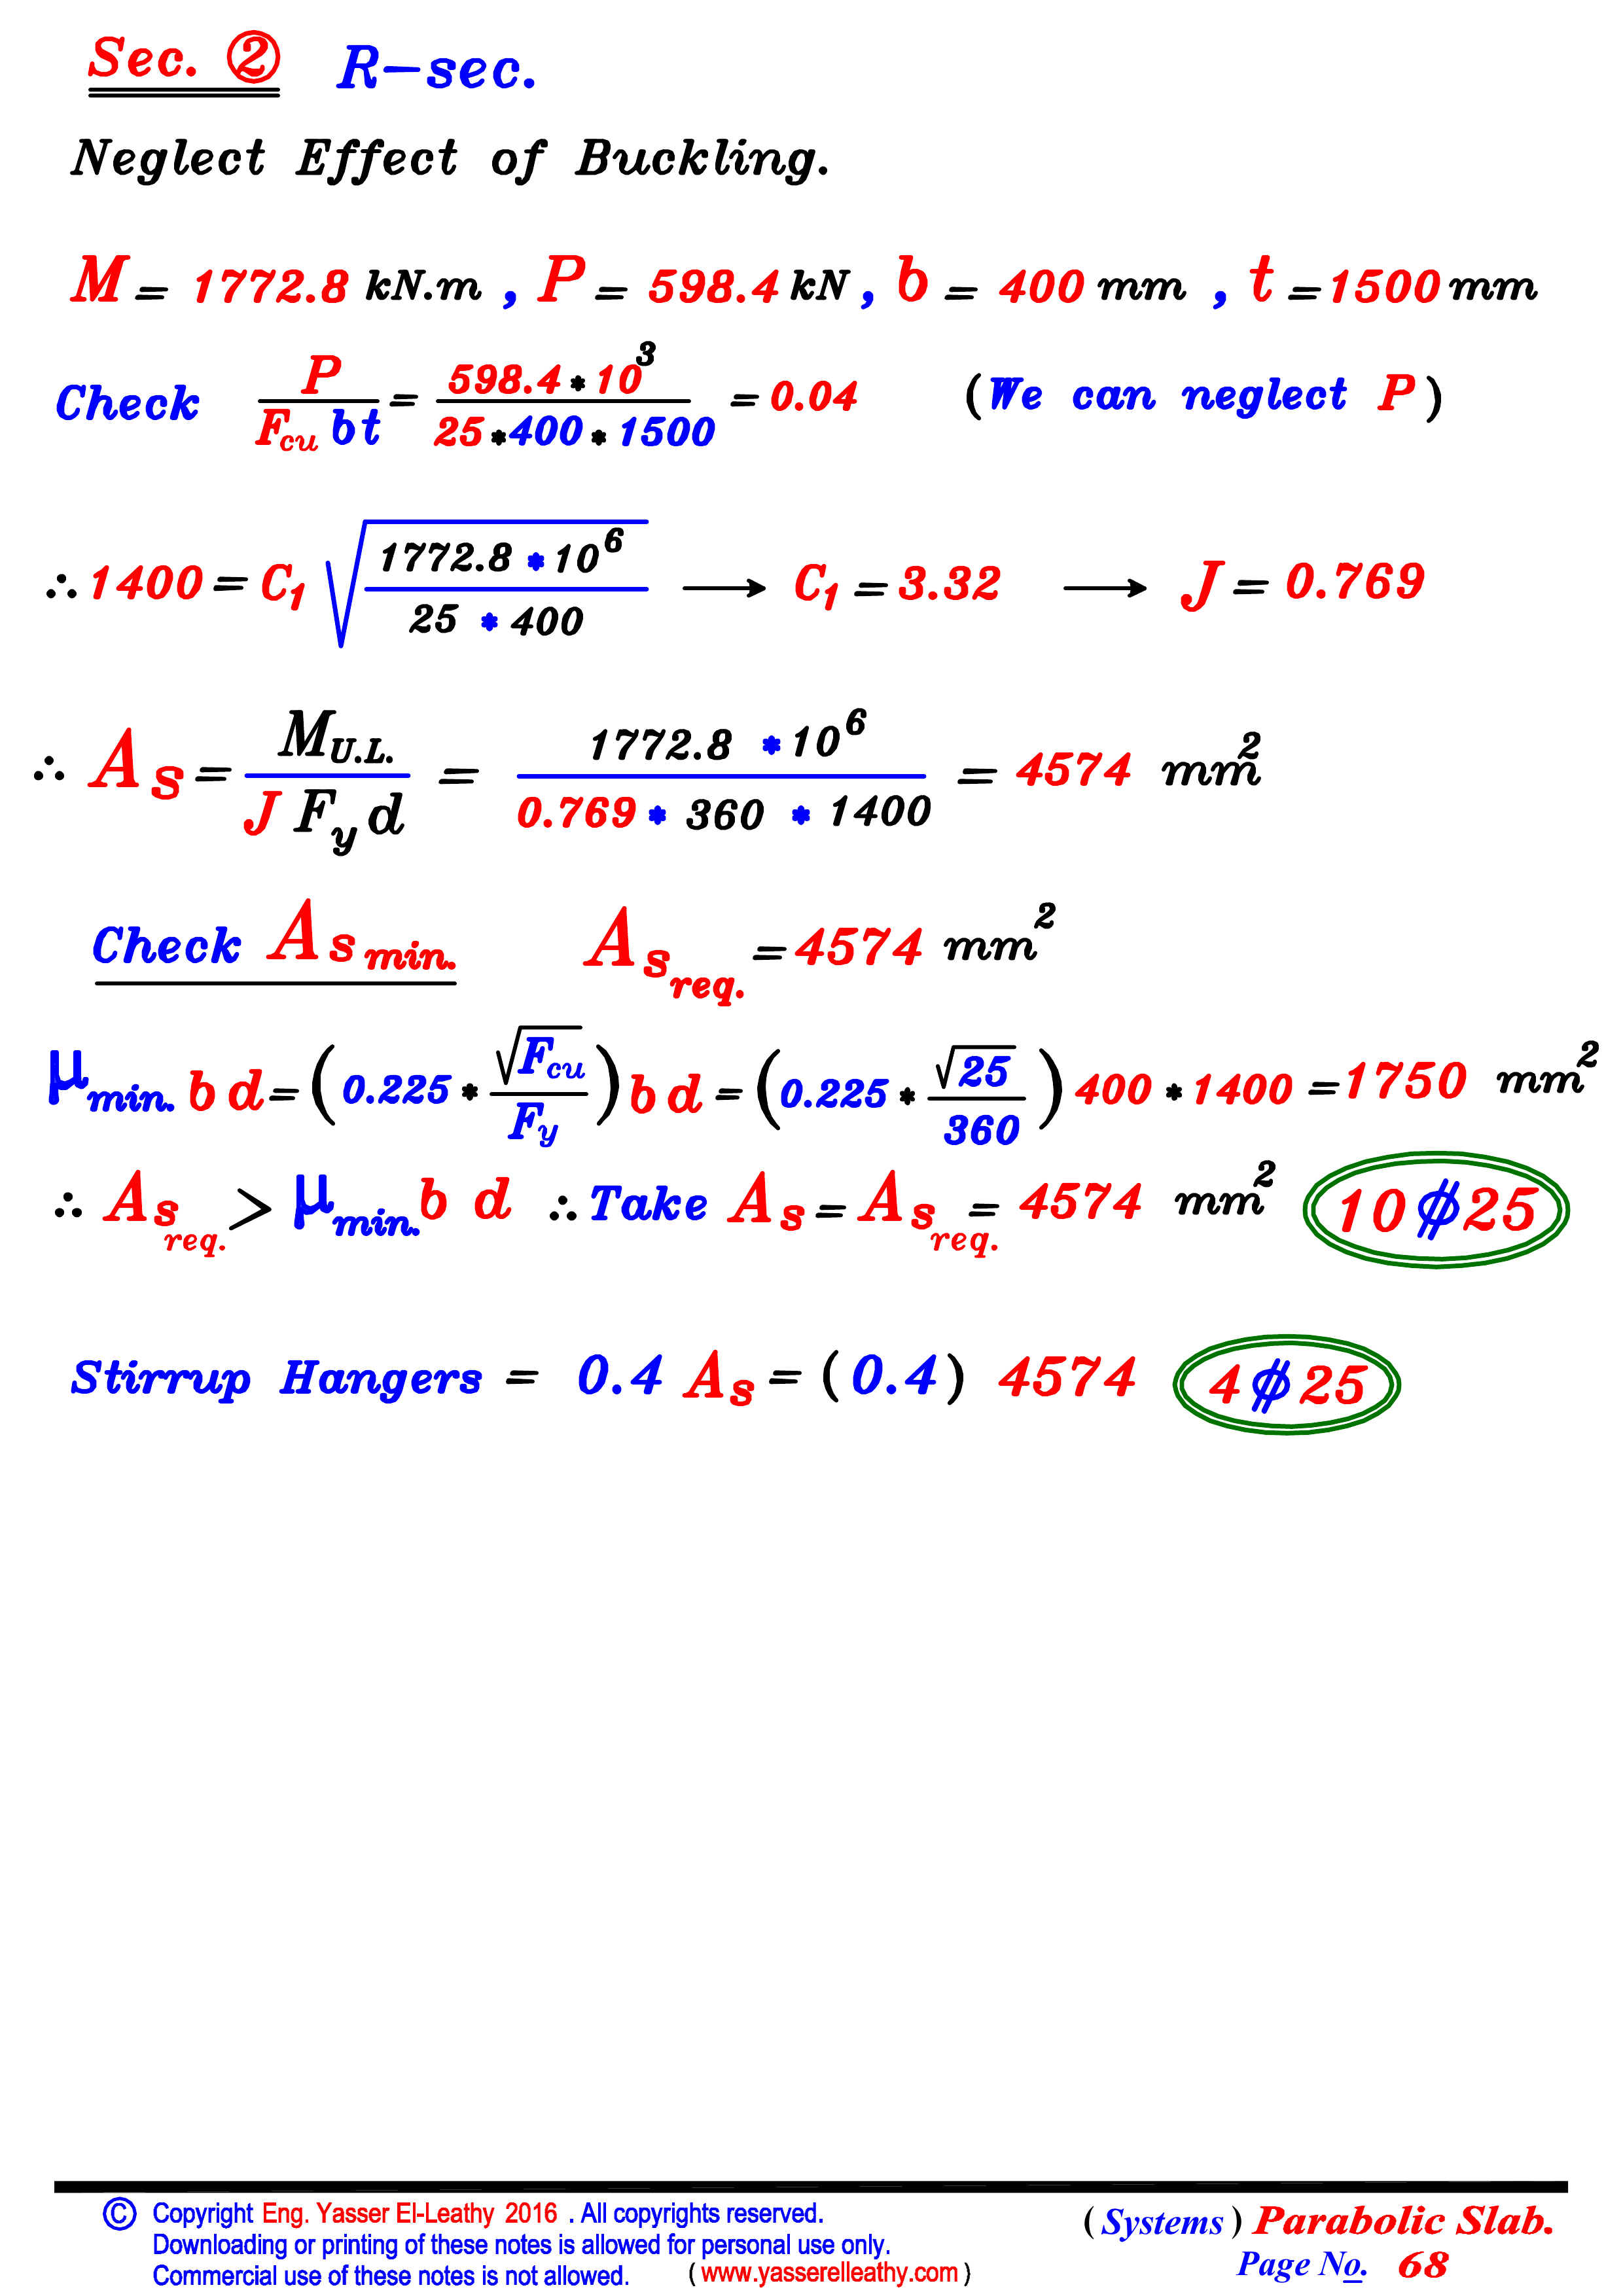 Sec. ② R-sec.
Neglect Effect of Buckling.
M = 1772.8 kN.m , P = 598.4 kN , b = 400 mm , t = 1500 mm
Check P / F_cu b t = 598.4 * 10^3 / 25 * 400 * 1500 = 0.04 (We can neglect P)
∴ 1400 = C_1 √(1772.8 * 10^6 / 25 * 400) → C_1 = 3.32 → J = 0.769
∴ A_s = M_U.L. / J F_y d = 1772.8 * 10^6 / 0.769 * 360 * 1400 = 4574 mm^2
Check A_s min. A_s req. = 4574 mm^2
μ_min. b d = (0.225 * √F_cu / F_y) b d = (0.225 * √25 / 360) 400 * 1400 = 1750 mm^2
∴ A_s req. > μ_min. b d ∴ Take A_s = A_s req. = 4574 mm^2 10 ⌀ 25
Stirrup Hangers = 0.4 A_s = (0.4) 4574 4 ⌀ 25
© Copyright Eng. Yasser El-Leathy 2016 . All copyrights reserved.
Downloading or printing of these notes is allowed for personal use only.
Commercial use of these notes is not allowed. ( www.yasserelleathy.com )
( Systems ) Parabolic Slab.
Page No. 68